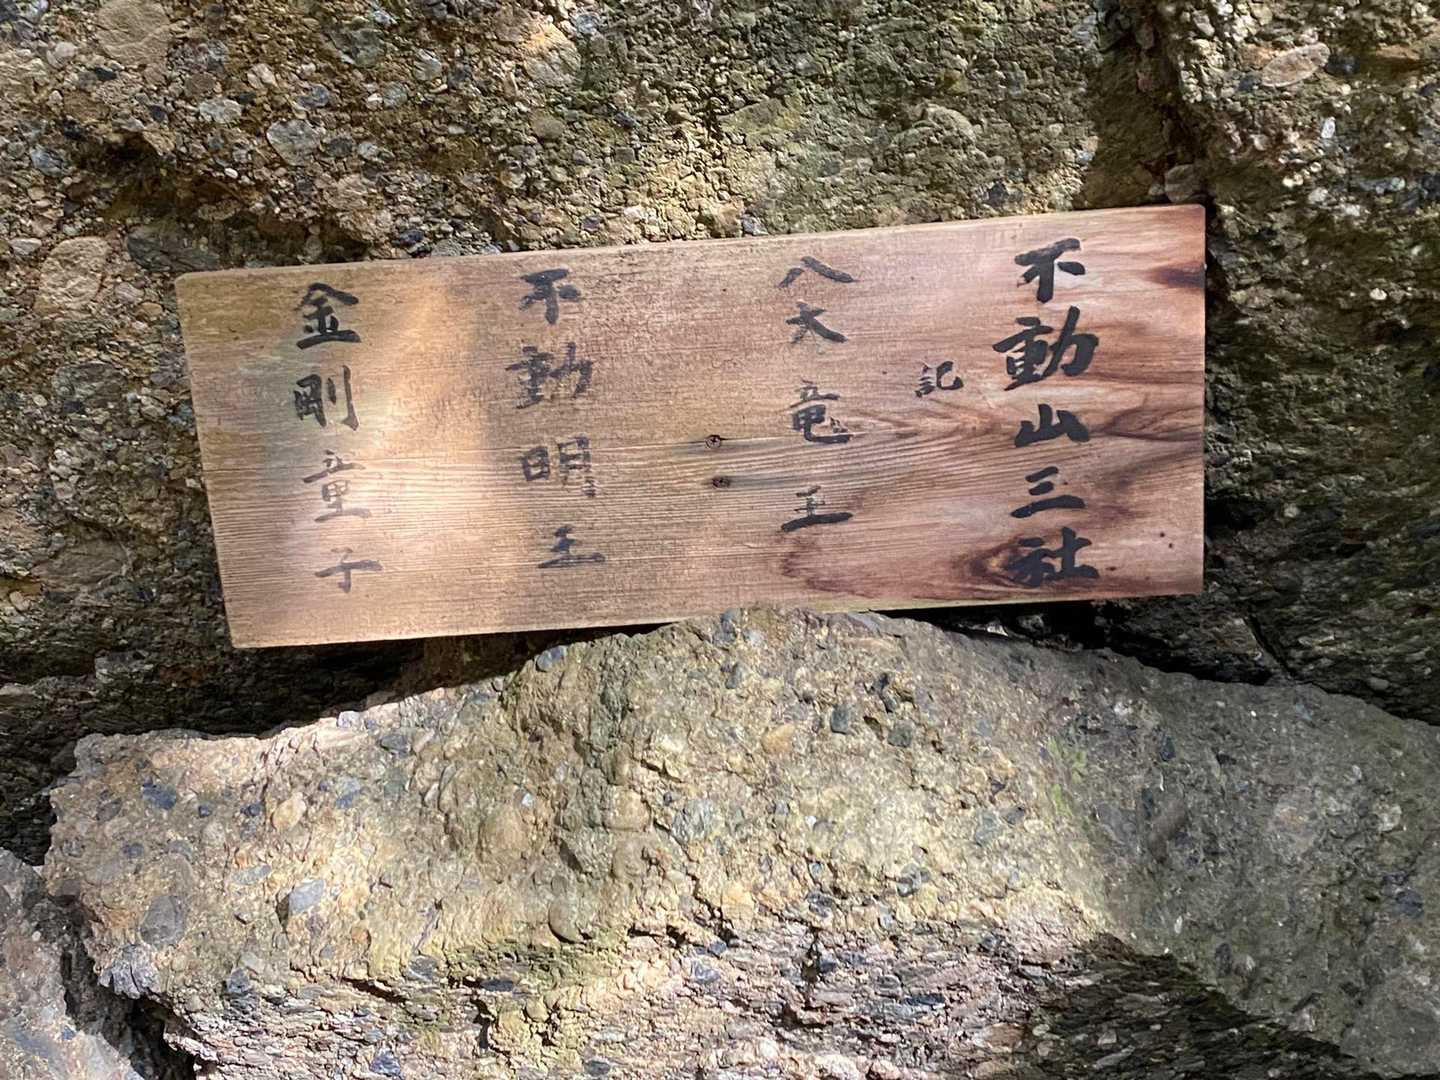 不動山三社
記
八大竜王
不動明王
金剛童子